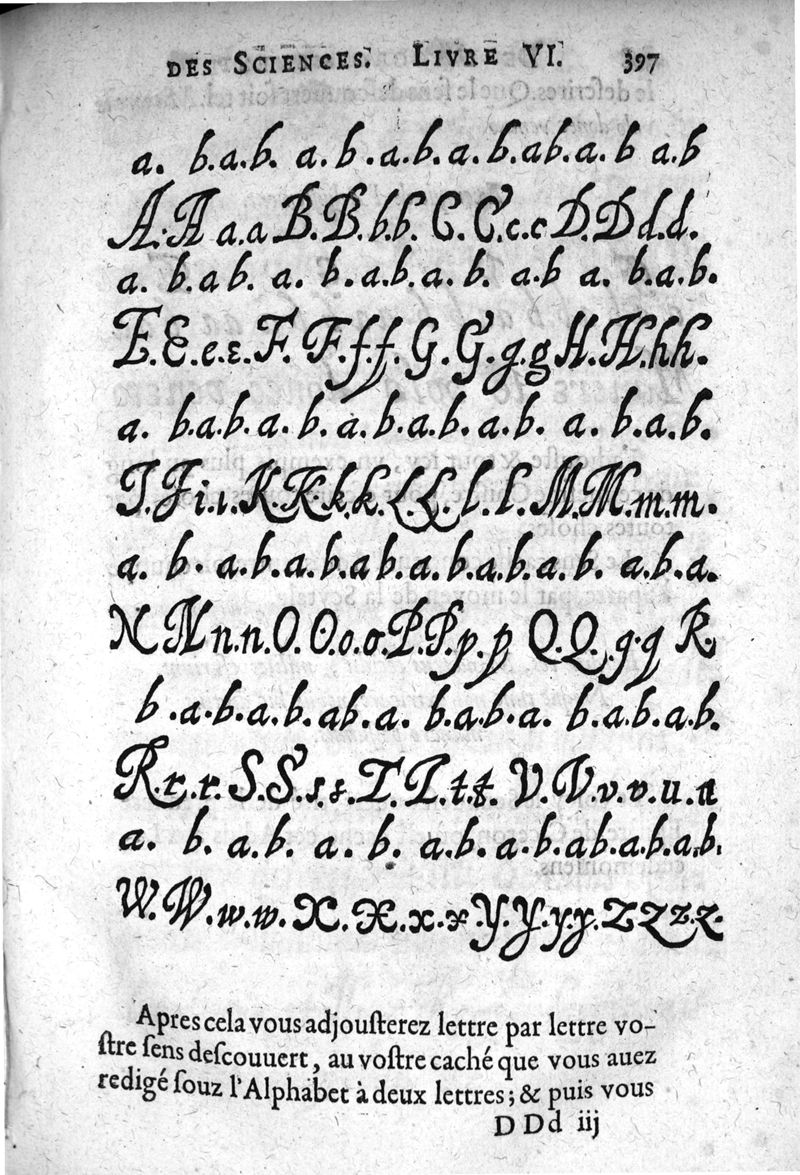 DES SCIENCES. LIVRE VI. 397
a. b.a.b. a.b.a.b.a.b.ab.a.b a.b
A.A a.a B.B.b.b. C.C.c.c D.D d.d.
a. b.a b. a. b.a.b.a.b. a.b a. b.a.b.
E.E.e.ε.F.F.f.f.G.G.g.g H.H.h.h.
a. b.a.b.a.b.a.b.a.b.a.b. a. b.a.b.
I.I i.ı.K.K k.k.L.L.l.l.M.M.m.m.
a. b. a.b.a.b.a b.a.b.a.b.a.b. a.b.a.
N N n.n.O.O.o.o.P.P.p.p Q.Q.q.q R.
b.a.b.a.b.ab.a. b.a.b.a. b.a.b.a.b.
R.r.r.S.S.s.s.T.T.t.t. V.V.v.v.u.u
a. b. a.b. a. b. a.b.a.b.ab.a.b.a.b.
W.W.w.w.X.X.x.x.Y.Y.y.y.Z Z z.z.
Apres cela vous adjouſterez lettre par lettre vo-
ſtre ſens deſcouuert, au voſtre caché que vous auez
redigé ſouz l'Alphabet à deux lettres; & puis vous
D D d iij